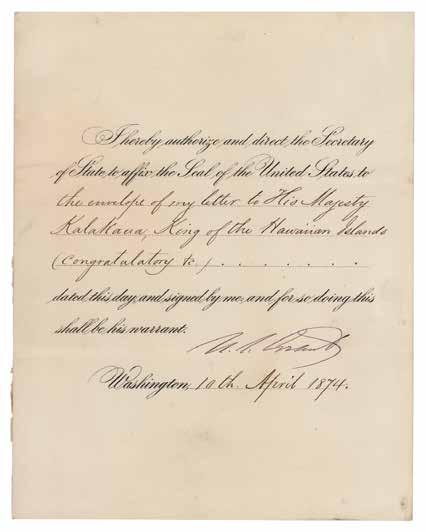 I hereby authorize and direct the Secretary
of State to affix the Seal of the United States to
the envelope of my letter to His Majesty
Kalakaua, King of the Hawaiian Islands
(Congratulatory &c.) . . . . . . .
dated this day, and signed by me, and for so doing this
shall be his warrant.
U. S. Grant
Washington, 10th. April 1874.